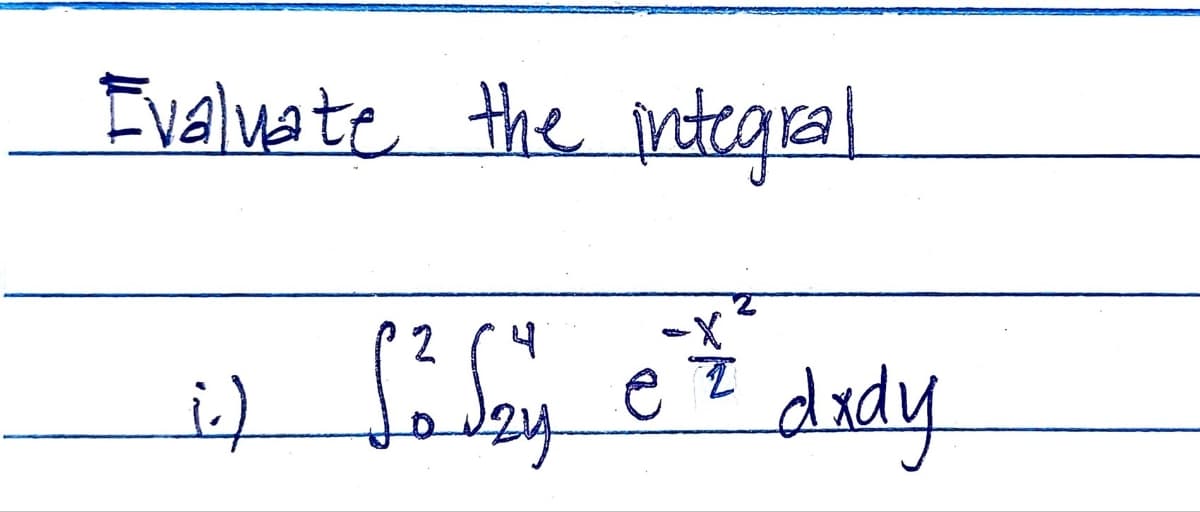 Evaluate the integral
i.) ∫₀² ∫₂y⁴ e^(-x²/2) dxdy